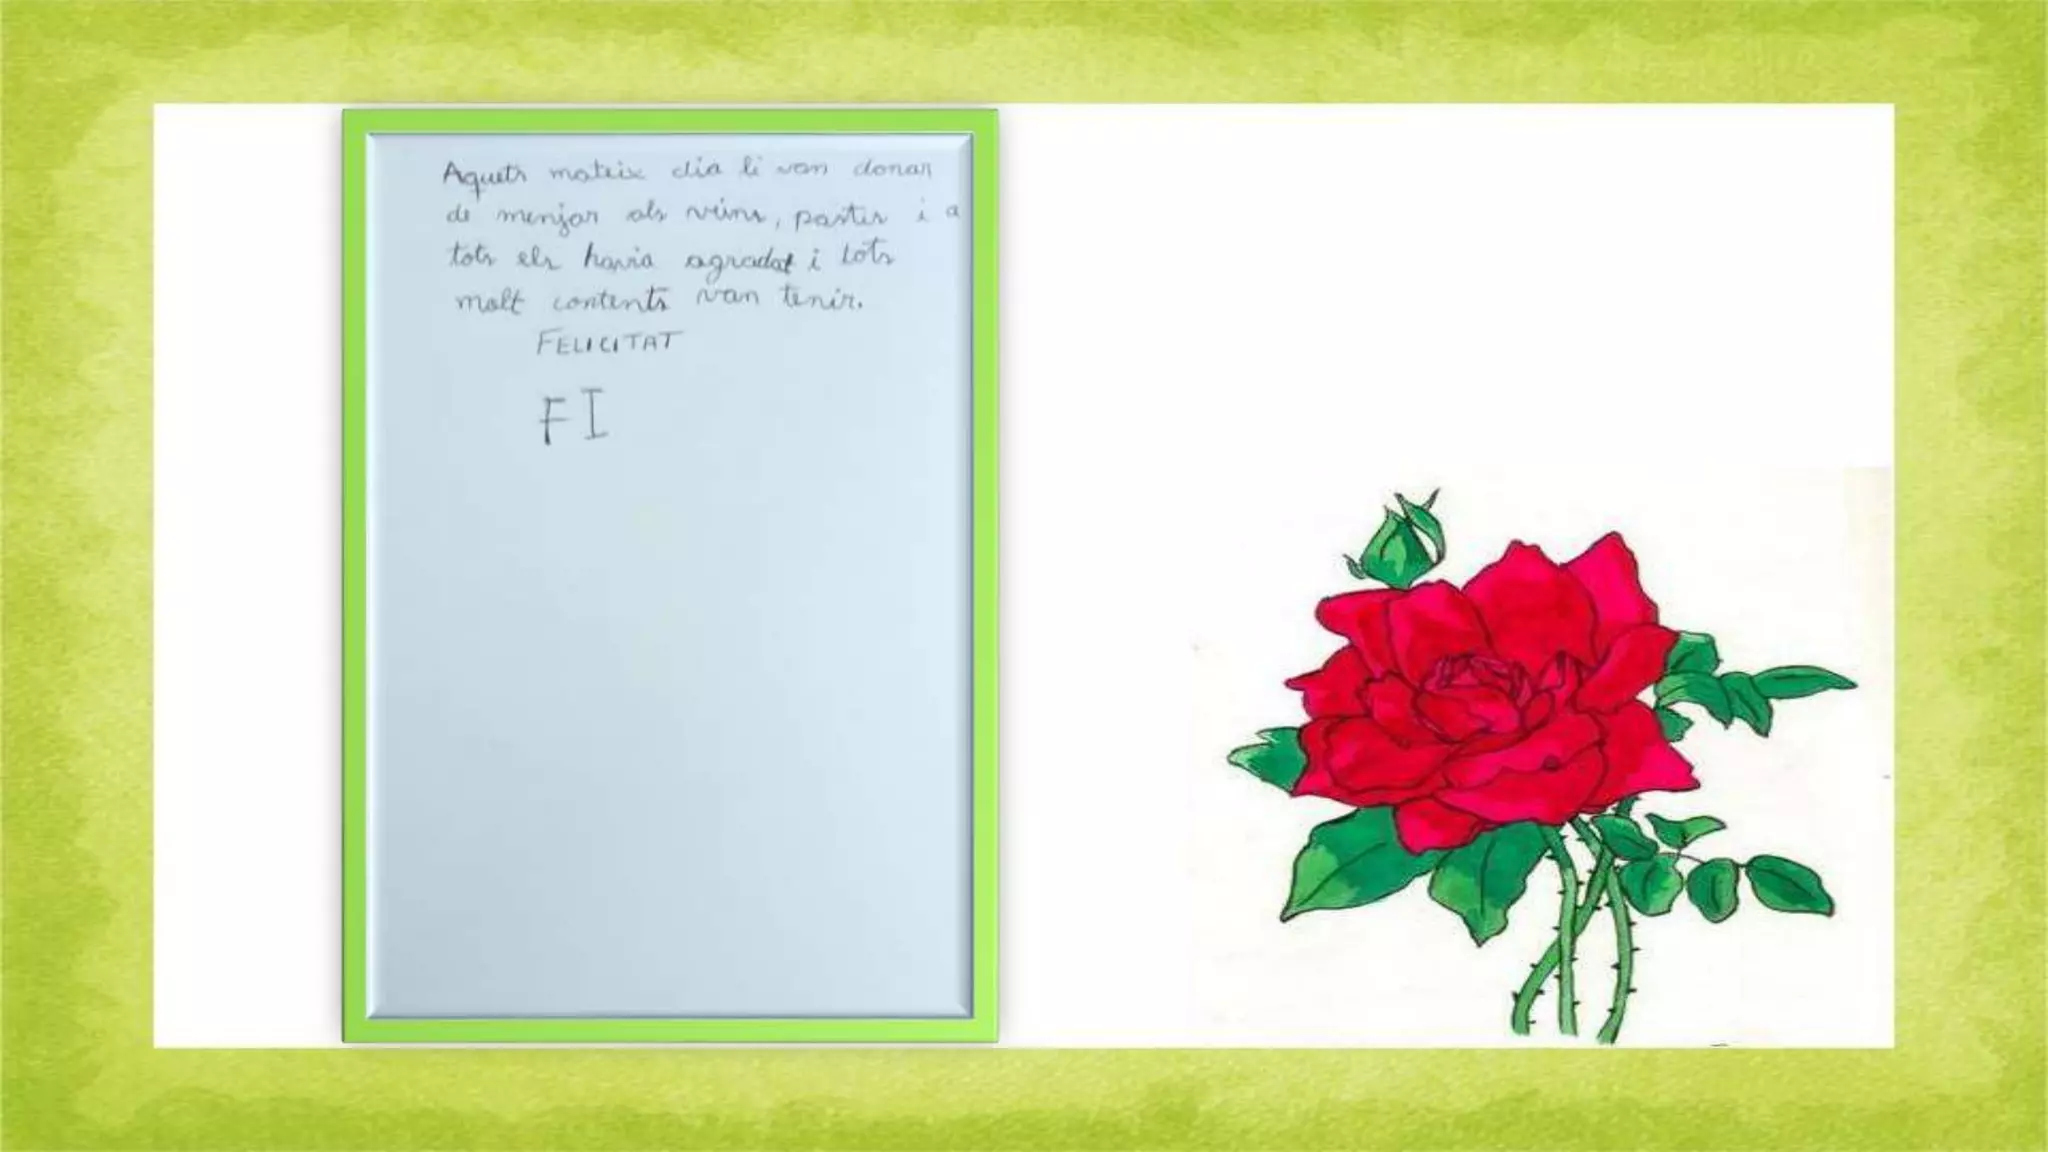 Aquets mateix dia li van donar
de menjar als veins, pastis i a
tots els havia agradat i tots
molt contents van tenir.
FELICITAT
FI